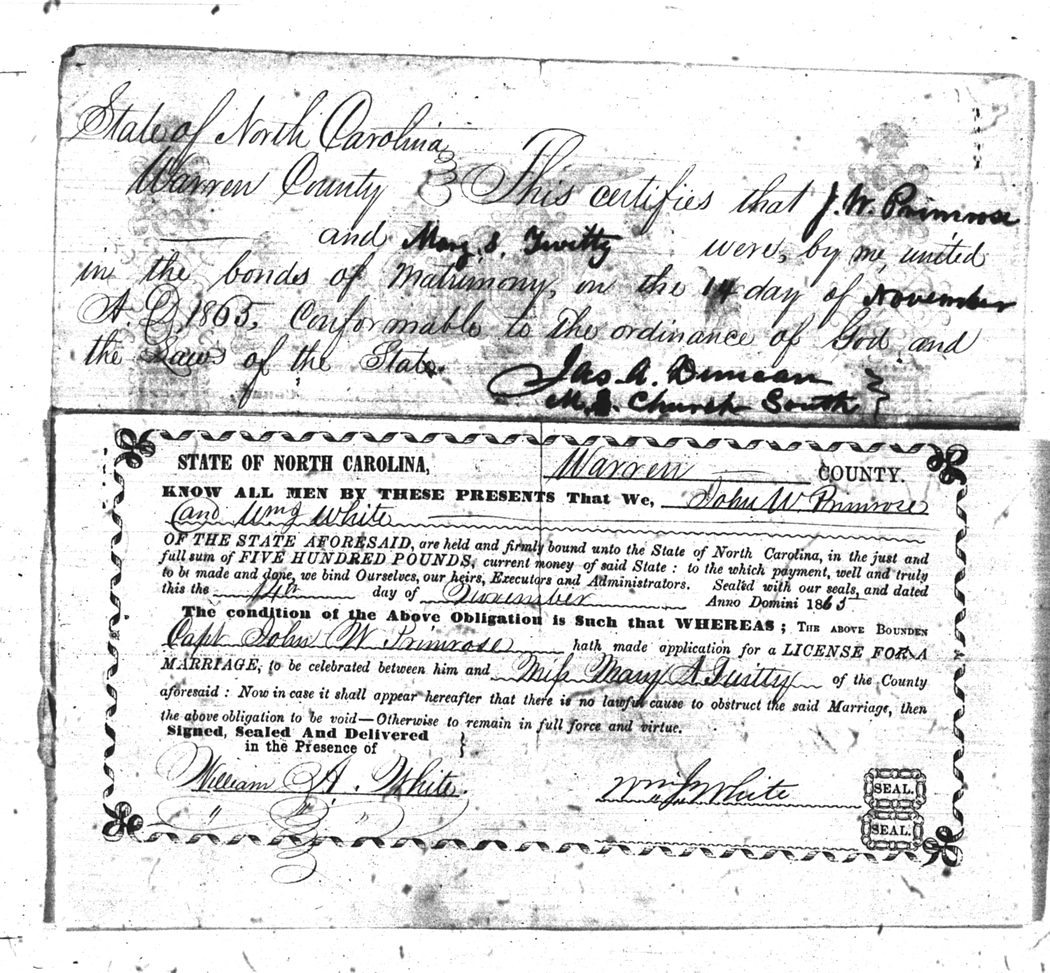 State of North Carolina
Warren County } This certifies that J. W. Primrose
and Mary S. Twitty were, by me, united
in the bonds of Matrimony, on the 14 day of November
A.D. 1865, Conformable to the ordinance of God and
the Laws of the State.
Jas. A. Duncan
M. E. Church South
STATE OF NORTH CAROLINA, Warren COUNTY.
KNOW ALL MEN BY THESE PRESENTS That We, John W Primrose
and Wm J White
OF THE STATE AFORESAID, are held and firmly bound unto the State of North Carolina, in the just and
full sum of FIVE HUNDRED POUNDS, current money of said State: to the which payment, well and truly
to be made and done, we bind Ourselves, our heirs, Executors and Administrators. Sealed with our seals, and dated
this the 14th day of November Anno Domini 1865
The condition of the Above Obligation is Such that WHEREAS; THE ABOVE BOUNDEN
Capt John W Primrose hath made application for a LICENSE FOR A
MARRIAGE, to be celebrated between him and Miss Mary S Twitty of the County
aforesaid: Now in case it shall appear hereafter that there is no lawful cause to obstruct the said Marriage, then
the above obligation to be void—Otherwise to remain in full force and virtue.
Signed, Sealed And Delivered
in the Presence of
William A. White.
Wm J White SEAL.
SEAL.